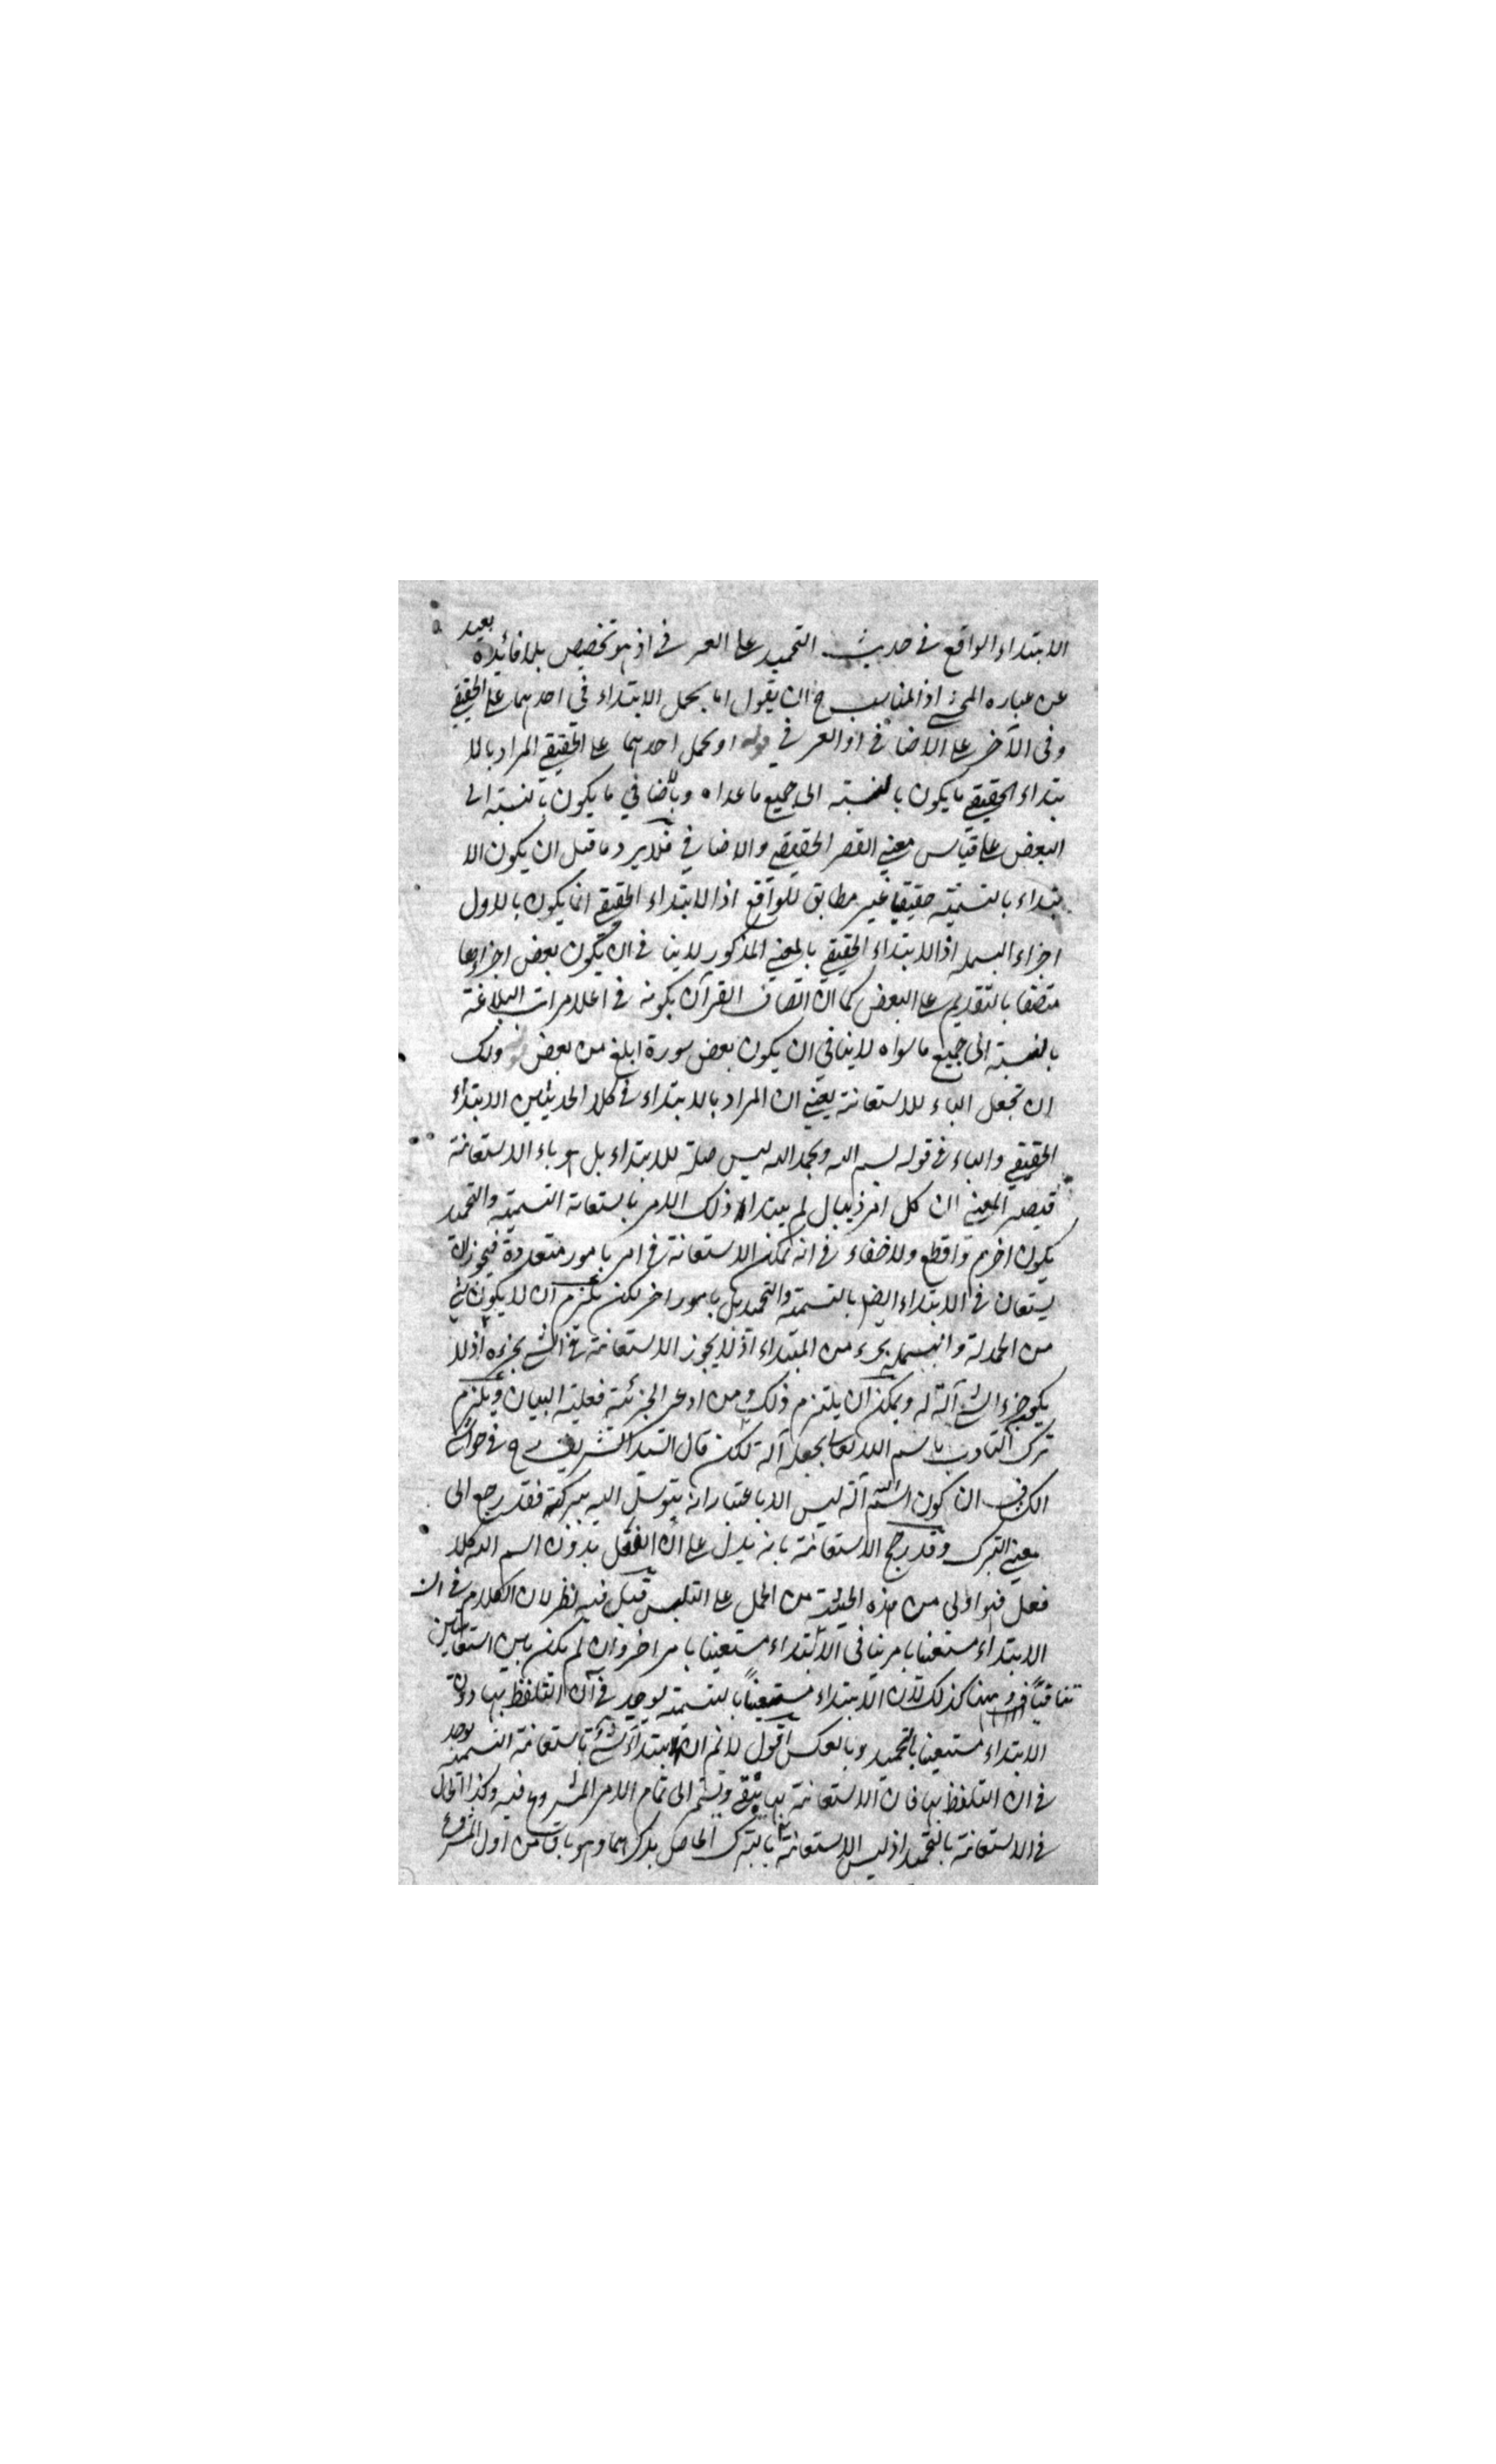 الابتداء الواقع في حديث التحميد على العرفي اذ هو تخصيص بلا فائدة بعيد
عن عبارة المحشي اذ المناسب ح ان يقول اما بحمل الابتداء في احدهما على الحقيقي
وفي الآخر على الاضافي او العرفي قوله او بحمل احدهما على الحقيقي المراد بالا
بتداء الحقيقي ما يكون بالنسبة الى جميع ما عداه وبالاضافي ما يكون بالنسبة الى
البعض على قياس معني القصر الحقيقي والاضافي فلا يرد ما قيل ان يكون الا
بتداء بالتسمية حقيقيا غير مطابق للواقع اذ الابتداء الحقيقي انما يكون بالاول
اجزاء البسملة اذ الابتداء الحقيقي بالمعني المذكور لا ينافي ان يكون بعض اجزاءها
متصفا بالتقديم على البعض كما ان اتصاف القرآن بكونه في اعلا مراتب البلاغة
بالنسبة الى جميع ما سواه لا ينافي ان يكون بعض سورة ابلغ من بعض قوله ولك
ان تجعل الباء للاستعانة يعني ان المراد بالابتداء في كلا الحديثين الابتداء
الحقيقي والباء في قوله بسم الله وبحمد الله ليس صلة للابتداء بل هو باء الاستعانة
فيصير المعني ان كل امر ذي بال لم يبتداء ذلك الامر باستعانة التسمية والتحميد
يكون اجزم واقطع ولا خفاء في انه يمكن الاستعانة في امر بامور متعددة فيجوز ان
يستعان في الابتداء ايضا بالتسمية والتحميد بل بامور اخر لكن يلزم ان لا يكون شي
من الحمدلة والبسملة جزء من المبتداء اذ لا يجوز الاستعانة في الشي بجزءه اذ لا
يكون جزء الشي آلة له ويمكن ان يلتزم ذلك ومن ادعى الجزئية فعليه البيان ويلزم
ترك التادب باسم الله تعالى بجعله آلة لكن قال السيد الشريف في حواشي
الكشاف ان كون اسم الله آلة ليس الا باعتبار انه يتوسل اليه ببركته فقد رجع الى
معني التبرك وقد رجح الاستعانة بانه يدل على ان الفعل بدون اسم الله كلا
فعل فهو اولى من هذه الحيثية من الحمل على التلبس قيل فيه نظر لان الكلام في ان
الابتداء مستعينا بامر ينافي الابتداء مستعينا بامر اخر وان لم يكن بين استعانتين
تنافيا وههنا كذلك لان الابتداء مستعينا بالتسمية يوجد في آن التلفظ بها دون
الابتداء مستعينا بالتحميد وبالعكس اقول لا نم ان ابتداء شي باستعانة التسمية يوجد
في ان التلفظ بها فان الاستعانة بها يبقى ويستمر الى تمام الامر المشروع فيه وكذا الحال
في الاستعانة بالتحميد اذ ليس الاستعانة الا بالتبرك الحاصل بذكرهما وهو باق من اول المشروع